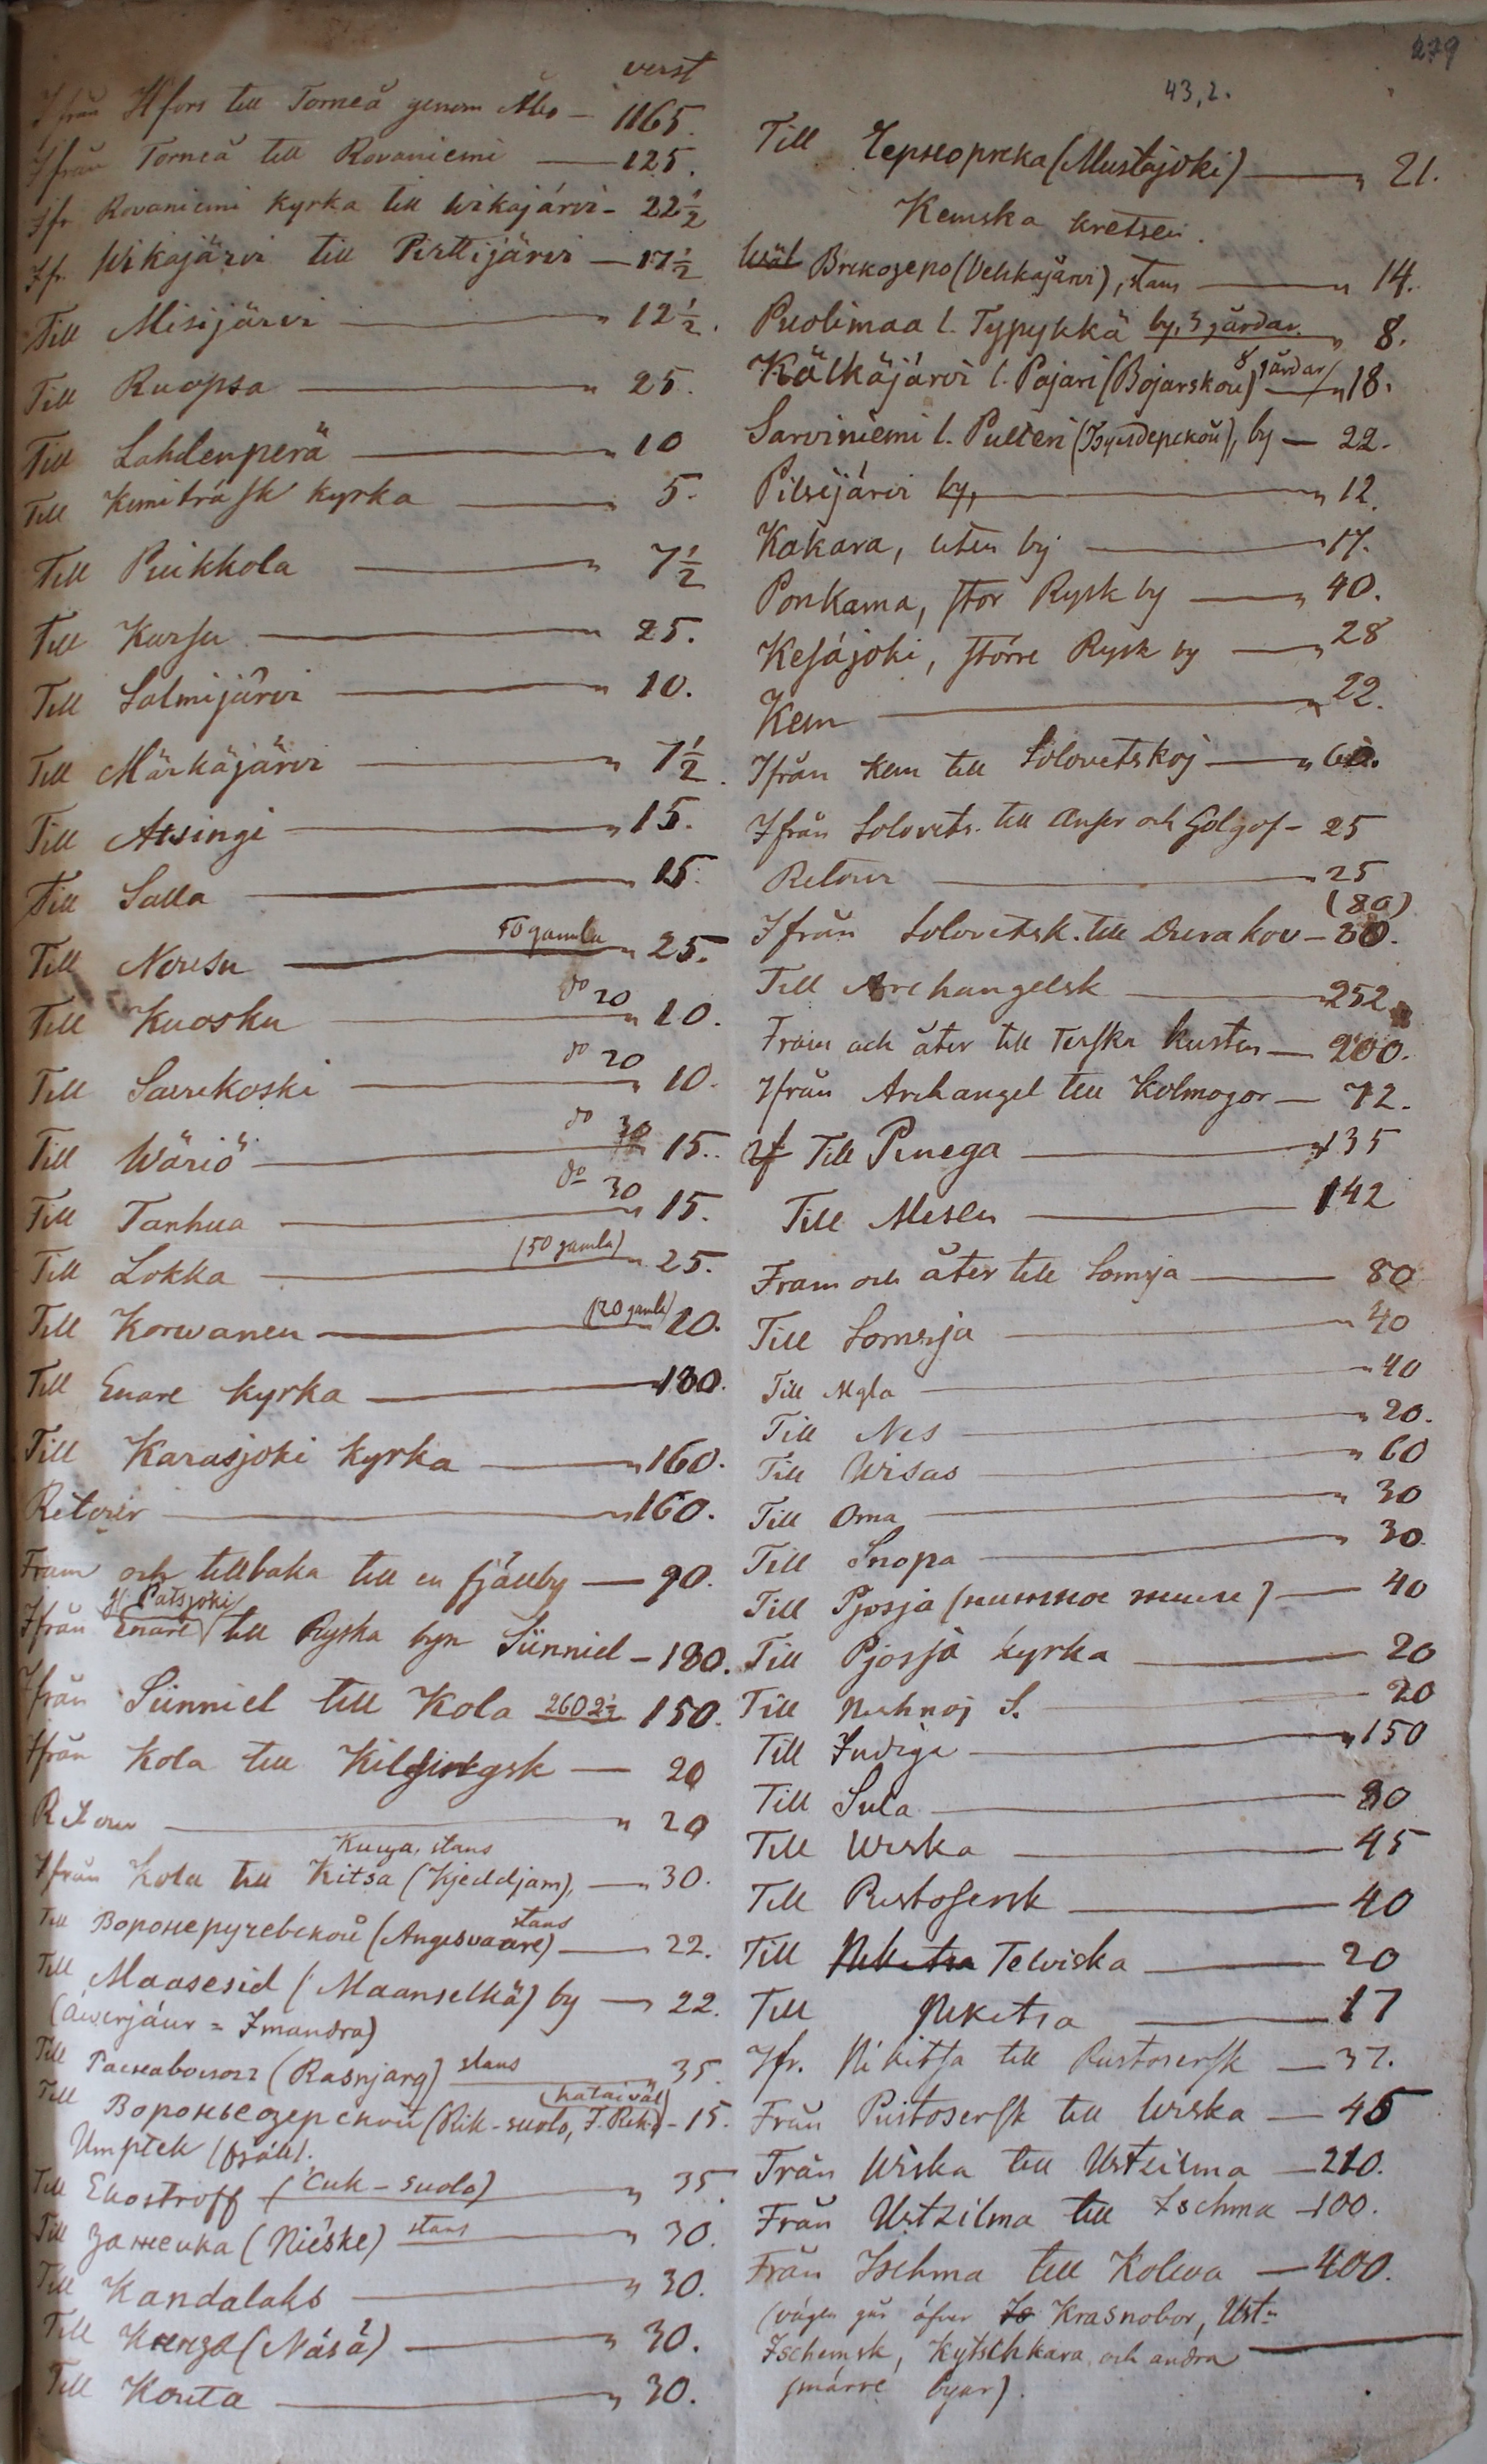 279
43,2.
verst
Ifrån Hfors till Torneå genom Åbo — 1165.
Ifrån Torneå till Rovaniemi — 125.
Ifr. Rovaniemi kyrka till Wikajärvi - 22½
Ifr. Wikajärvi till Pirttijärvi — 17½
Till Misijärvi — " 12½.
Till Ruopsa — " 25.
Till Lahdenperä — " 10
Till Kemiträsk kyrka — " 5.
Till Puikkola — " 7½
Till Kursu — " 25.
Till Salmijärvi — " 10.
Till Märkäjärvi — " 7½.
Till Atsingi — " 15.
Till Salla — " 15.
Till Norsu — 50 gamla " 25.
Till Kuosku — do 20 " 10.
Till Saurikoski — do 20 " 10.
Till Wäriö — do 30 " 15.
Till Tanhua — do 30 " 15.
Till Lokka — (50 gamla) " 25.
Till Korwanen — (20 gamla) 20.
Till Enare kyrka — 180.
Till Karasjoki kyrka — " 160.
Retour — " 160.
Fram och tillbaka till en fjällby — 90.
Patsjoki
Ifrån Enare till Ryska byn Sünniel — 180.
Ifrån Sünniel till Kola 260 2½ 150.
Ifrån Kola till — 20
Retour — " 20
Kunga, stans
Ifrån Kola till Kitsa (Kjeddjam), — " 30.
Till Воронеручевской (Angesvaare) stans — 22.
Till Maasesid (Maanselkä) by — " 22.
(Awerjáur = Imandra)
Till (Rasnjarg) stans — " 35.
Till Вороньеозерской (Rik-suolo, — 15.
Umptek (fjäll).
Till Ekostroff (Čuk-suolo) — " 35.
Till Зашеика (Niéske) stans — " 30.
Till Kandalaks — " 30.
Till (Näsä) — " 30.
Till Kouta — " 30.
Till (Mustajoki) — " 21.
Kemska kretsen.
(Vehkajärvi), stans — " 14.
Puolimaa l. Typykkä by, 3 gårdar. " 8.
Kälkäjärvi l. Pajari (Bojarskoи) 8 gårdar — " 18.
Sarviniemi l. Pulleri by — 22.
Pilsijärvi by, — " 12.
Kakara, liten by — " 17.
Ponkama, stor Rysk by — " 40.
Kesäjoki, större Rysk by — " 28
Kem — " 22.
Ifrån Kem till Solovetskoj — " 60.
Ifrån Solovets. till Anser och Golgof — 25
Retour — " 25
(80)
Ifrån Solovetsk. till — 80.
Till Archangelsk — 252
Fram och åter till Terska kusten — 200.
Ifrån Archangel till Kolmogor — 72.
Till Pinega — " 135
Till Mesen — 142
Fram och åter till Somsja — 80
Till Somsja — " 40
Till Mgla — " 40
Till Nes — " 20.
Till Wisas — " 60
Till Oma — " 30
Till Snopa — " 30
Till Pjosja — 40
Till Pjosja kyrka — 20
Till S. — 20
Till Indiga — " 150
Till Sula — 80
Till Wiska — 45
Till Pustosersk — 40
Till Telviska — 20
Till Nikitsa — 17
Ifr. Nikitsa till Pustosersk — 37.
Från Pustosersk till Wiska — 45
Från Wiska till Ustzilma — 210.
Från Ustzilma till Ischma — 100.
Från Ischma till Kolwa — 400.
(vägen går öfver Krasnobor, Ust-
Ischemsk, Kytschkara och andra
smärre byar).